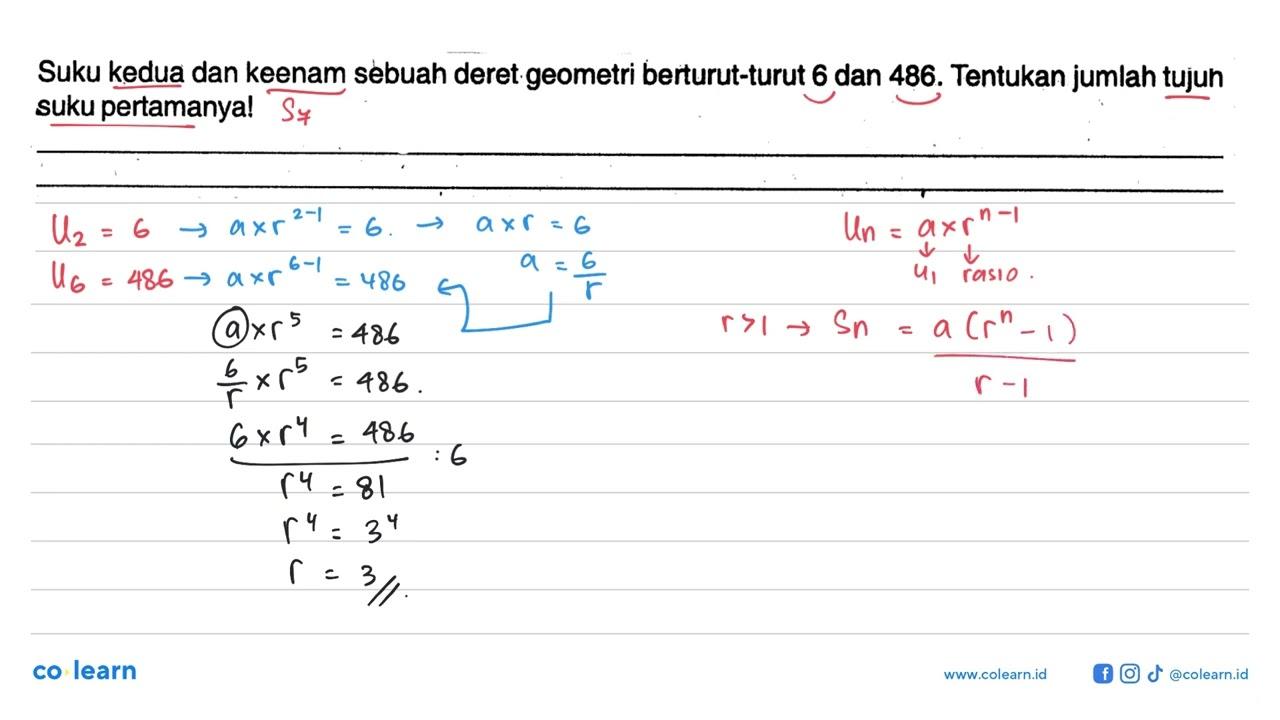 Suku kedua dan keenam sebuah deret geometri berturut-turut 6 dan 486. Tentukan jumlah tujuh
suku pertamanya! S₇
U₂ = 6 → a×r²⁻¹ = 6. → a×r = 6
a = 6/r
U₆ = 486 → a×r⁶⁻¹ = 486
a×r⁵ = 486
6/r × r⁵ = 486.
6×r⁴ = 486 : 6
r⁴ = 81
r⁴ = 3⁴
r = 3 //.
Un = a×rⁿ⁻¹
↓ ↓
u₁ rasio.
r>1 → Sn = a(rⁿ-1)
r-1
co learn
www.colearn.id
@colearn.id